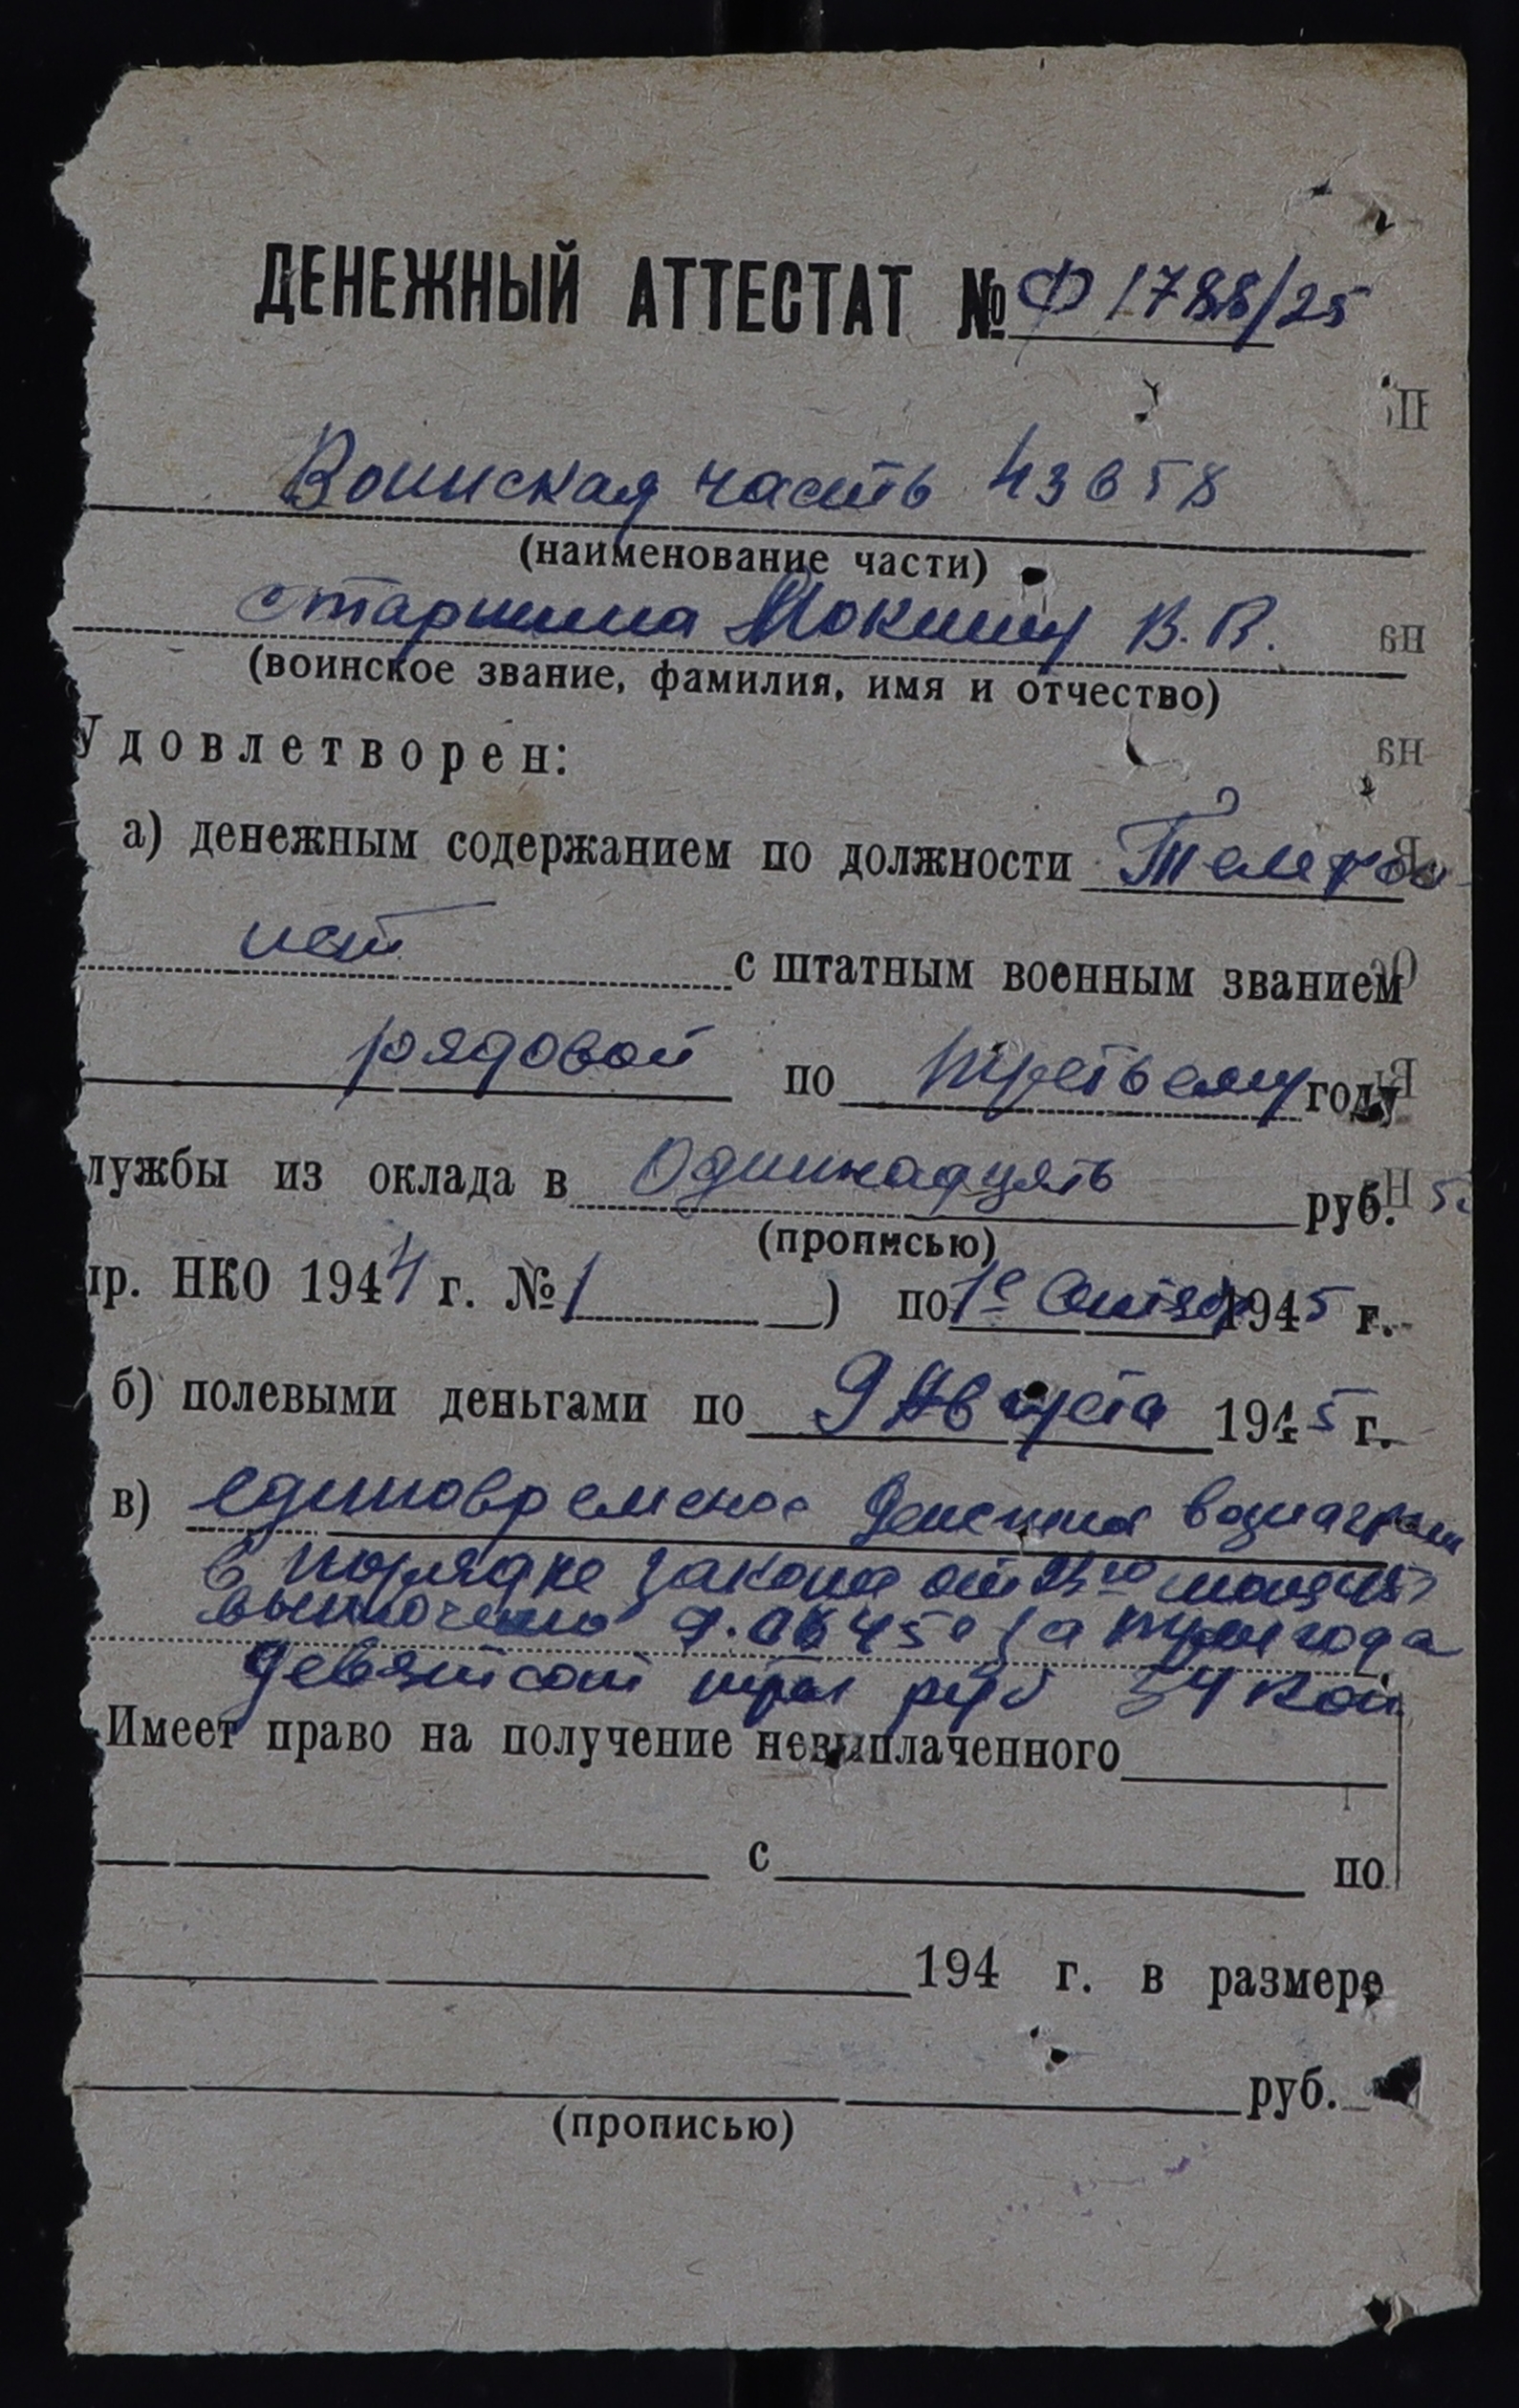 ДЕНЕЖНЫЙ АТТЕСТАТ № Ф 1788/25
Воинская часть 43658
(наименование части)
старшина Мокшин В. П.
(воинское звание, фамилия, имя и отчество)
Удовлетворен:
а) денежным содержанием по должности Телефо
нист
с штатным военным званием
рядовой по третьему году
лужбы из оклада в Одиннадцать руб.
(прописью)
пр. НКО 1944 г. № 1 ) по 1е Октябр 1945 г.
б) полевыми деньгами по 9 Августа 1945 г.
в) единовременное Денежное вознагражд
в порядке закона от 23го
выплочено за три года
девятсот три руб 54 коп
Имеет право на получение невыплаченного
с по
194 г. в размере
руб.
(прописью)